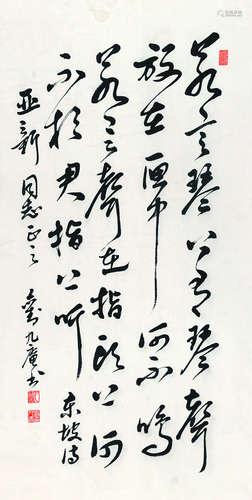 若言琴上有琴聲
放在匣中何不鳴
若言聲在指頭上何
不於君指上听 東坡诗
亚新同志正之 劉九庵书